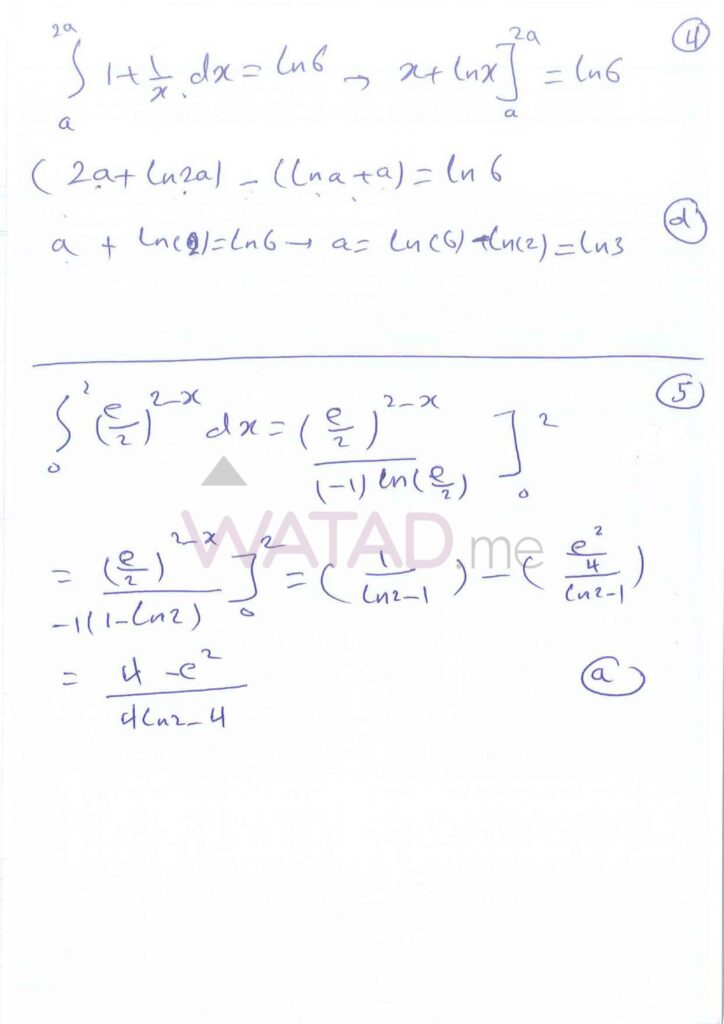 ∫_a^{2a} 1 + 1/x dx = ln6 → x + lnx ]_a^{2a} = ln6 ④
(2a + ln2a) - (lna + a) = ln 6
a + ln(2) = ln6 → a = ln(6) - ln(2) = ln3 ⓓ
∫_0^2 (e/2)^{2-x} dx = (e/2)^{2-x} / (-1) ln(e/2) ]_0^2 ⑤
WATAD.me
= (e/2)^{2-x} / -1(1-ln2) ]_0^2 = (1 / ln2-1) - (e^2/4 / ln2-1)
= 4 - e^2 / 4ln2 - 4 ⓐ